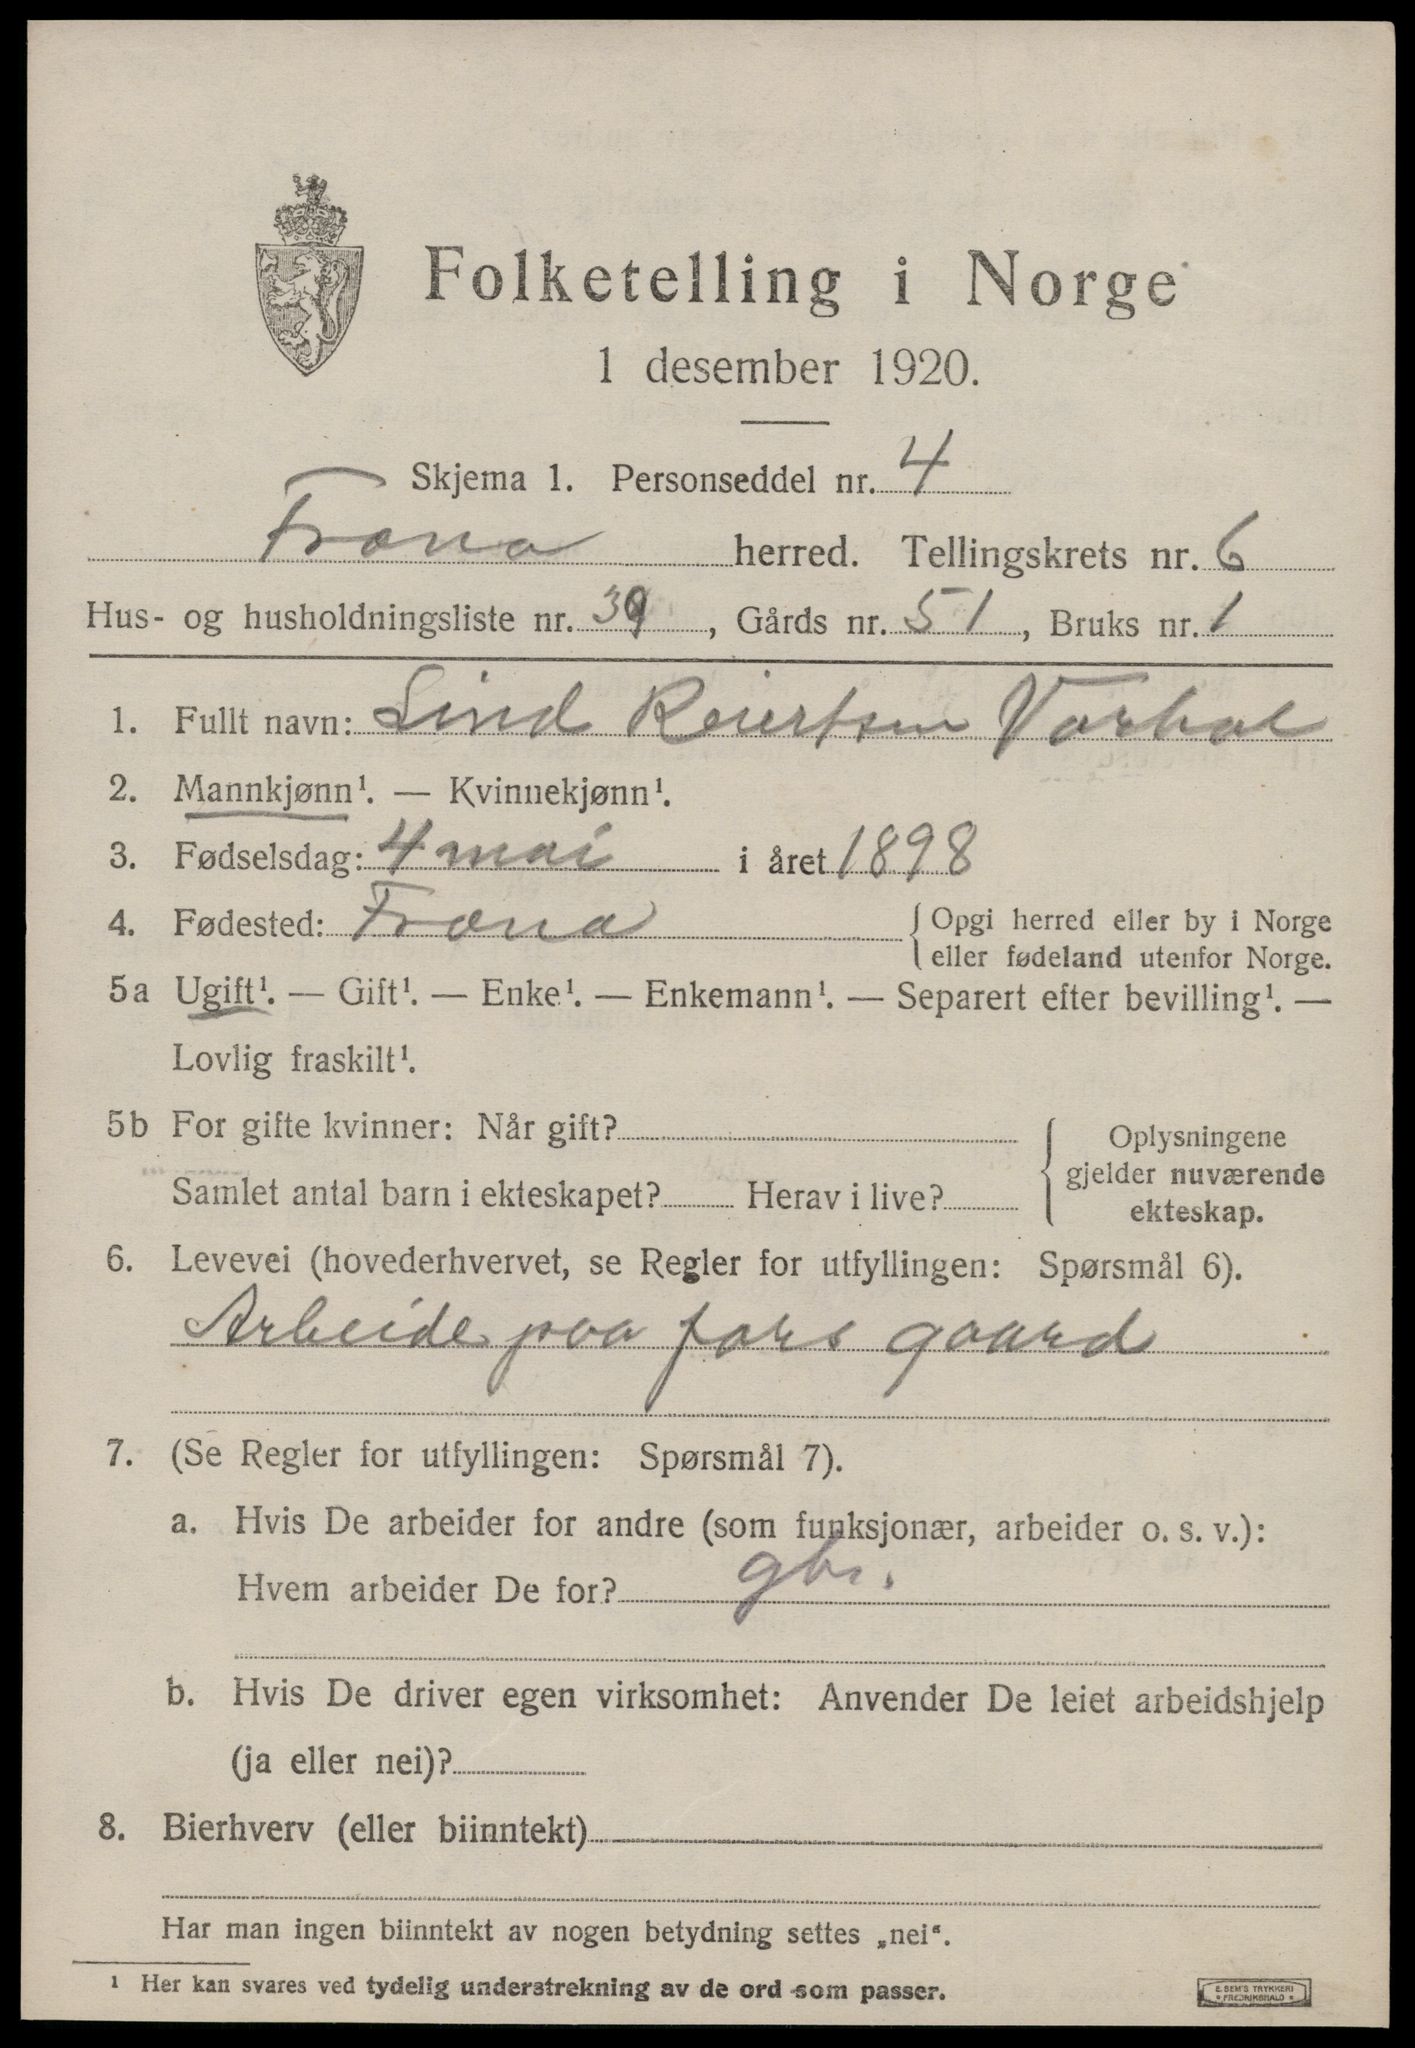 Folketelling i Norge
1 desember 1920.
Skjema 1. Personseddel nr. 4
Fræna herred. Tellingskrets nr. 6
Hus- og husholdningsliste nr. 39, Gårds nr. 51, Bruks nr. 1
1. Fullt navn: Lind Reiertsen Varhol
2. Mannkjønn¹. — Kvinnekjønn¹.
3. Fødselsdag: 4 mai i året 1898
4. Fødested: Fræna { Opgi herred eller by i Norge
eller fødeland utenfor Norge.
5a Ugift¹. — Gift¹. — Enke¹. — Enkemann¹. — Separert efter bevilling¹. —
Lovlig fraskilt¹.
5b For gifte kvinner: Når gift? { Oplysningene
gjelder nuværende
Samlet antal barn i ekteskapet? Herav i live? ekteskap.
6. Levevei (hovederhvervet, se Regler for utfyllingen: Spørsmål 6).
Arbeide paa fars gaard
7. (Se Regler for utfyllingen: Spørsmål 7).
a. Hvis De arbeider for andre (som funksjonær, arbeider o. s. v.):
Hvem arbeider De for? gbr.
b. Hvis De driver egen virksomhet: Anvender De leiet arbeidshjelp
(ja eller nei)?
8. Bierhverv (eller biinntekt) —
Har man ingen biinntekt av nogen betydning settes „nei“.
¹ Her kan svares ved tydelig understrekning av de ord som passer.
E. SEM'S TRYKKERI
* FREDRIKSHALD *